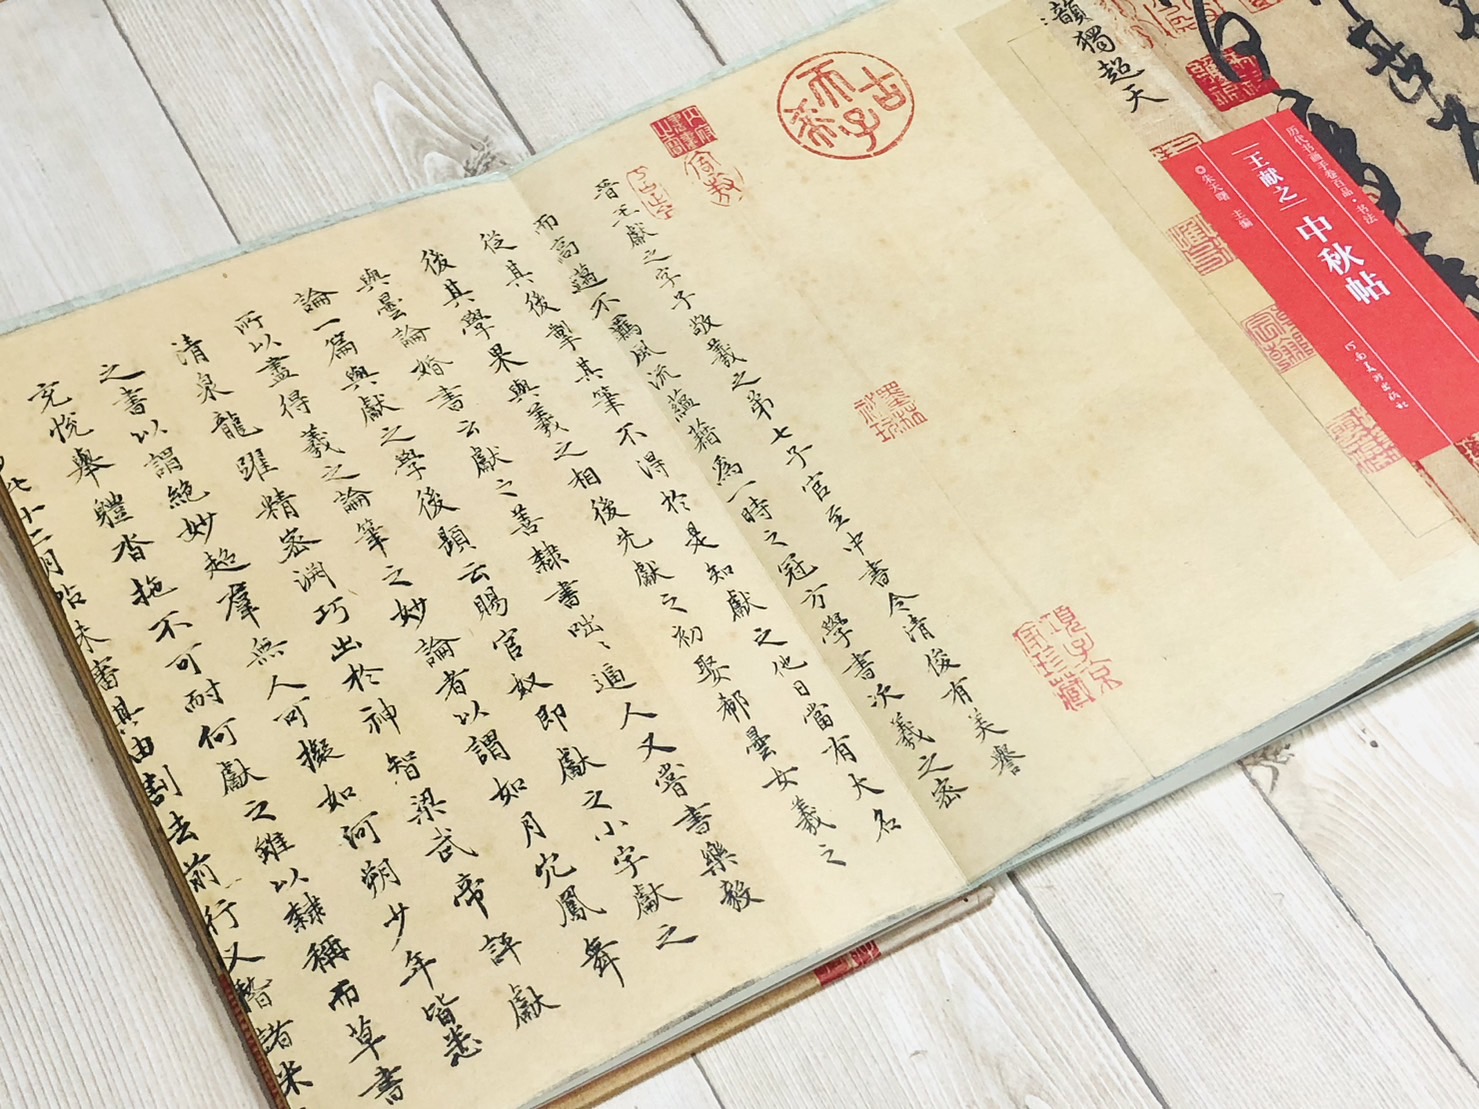 历代书画手卷百品·书法
王献之 中秋帖
朱天曙 主编
河南美术出版社
韻獨超天
古希天子
項子京家珍藏
晉王獻之字子敬羲之弟七子官至中書令清俊有美譽
而高邁不羈風流蘊藉為一時之冠方學書次羲之密
從其後掣其筆不得於是知獻之他日當有大名
後其學果與羲之相後先獻之初娶郗曇女羲之
與曇論婚書云獻之善隸書咄〻逼人又嘗書樂毅
論一篇與獻之學後題云賜官奴即獻之小字獻之
所以盡得羲之論筆之妙論者以謂如月穴鳳舞
清泉龍躍精密淵巧出於神智梁武帝評獻
之書以謂絕妙超羣無人可擬如河朔少年皆悉
充悅舉體沓拖不可耐何獻之雖以隸稱而草書
十二月帖朱書其由割去前行又諸米